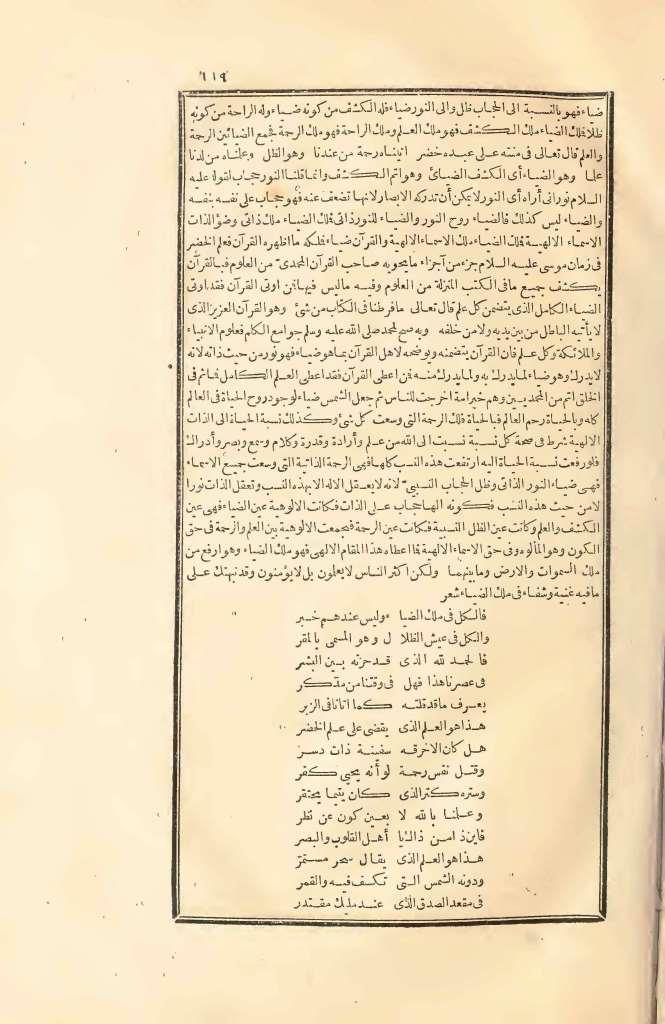 ٦١٩
ضياء فهو بالنسبة الى الحجاب ظل والى النور ضياء فله الكشف من كونه ضياء وله الراحة من كونه
ظلا فلك الضياء ملك الكشف فهو ملك العلم وملك الراحة فهو ملك الرحمة فجمع الضياء بين الرحمة
والعلم قال تعالى فى منته على عبده خضر آتيناه رحمة من عندنا وهو الظل وعلمناه من لدنا
علما وهو الضياء أى الكشف الضيائى وهو أتم الكشف وانما قلنا النور حجاب لقوله عليه
السلام نورانى أراه أى النور لا يمكن أن تدركه الابصار لانها تضعف عنه فهو حجاب على نفسه بنفسه
والضياء ليس كذلك فالضياء روح النور والضياء للنور ذاتى فملك الضياء ملك ذاتى وضوء الذات
الاسماء الالهية فملك الضياء ملك الاسماء الالهية والقرآن ضياء فملكه ما اظهره القرآن فعلم الخضر
فى زمان موسى عليه السلام جزء من أجزاء ما يحويه صاحب القرآن المحمدى من العلوم فبالقرآن
يكشف جميع ما فى الكتب المنزلة من العلوم وفيه ما ليس فيها فمن اوتى القرآن فقد اوتى
الضياء الكامل الذى يتضمن كل علم قال تعالى ما فرطنا فى الكتاب من شئ وهو القرآن العزيز الذى
لا يأتيه الباطل من بين يديه ولا من خلفه وبه صح لمحمد صلى الله عليه وسلم جوامع الكلم فعلوم الانبياء
والملائكة وكل علم فان القرآن يتضمنه ويوضحه لاهل القرآن بما هو ضياء فهو نور من حيث ذاته لانه
لا يدرك وهو ضياء لما يدرك به ولما يدرك منه فمن اعطى القرآن فقد اعطى العلم الكامل فما ثم فى
الخلق اتم من المحمديين وهم خير امة اخرجت للناس ثم جعل الشمس ضياء لوجود روح الحياة فى العالم
كله وبالحياة رحم العالم فالحياة فلك الرحمة التى وسعت كل شئ وكذلك نسبة الحياة الى الذات
الالهية شرط فى صحة كل نسبة نسبت الى الله من علم وأرادة وقدرة وكلام وسمع وبصر وأدراك
فلو رفعت نسبة الحياة اليه ارتفعت هذه النسب كلها فهى الرحمة الذاتية التى وسعت جميع الاسماء
فهى ضياء النور الذاتى وظل الحجاب النسبى لانه لا يعقل الاله الا بهذه النسب وتعقل الذات نورا
لا من حيث هذه النسب فكونه الها حجاب على الذات فكانت الالوهية عين الضياء فهى عين
الكشف والعلم وكانت عين الظل النسبية فكانت عين الرحمة فجمعت الالوهية بين العلم والرحمة فى حق
الكون وهو المألوه وفى حق الاسماء الالهية فما اعطاه هذا المقام الالهى فهو ملك الضياء وهو ارفع من
ملك السموات والارض وما بينهما ولكن اكثر الناس لا يعلمون بل لا يؤمنون وقد نبهتك على
ما فيه غنية وشفاء فى ملك الضياء شعر
فالكل فى ملك الضيا ء وليس عندهم خبر
والكل فى عيش الظلا ل وهو المسمى بالمقر
فالحمد لله الذى قد حزته بين البشر
فى عصرنا هذا فهل فى وقتنا من مذكر
يعرف ما قد قلته كما اتانا فى الزبر
هذا هو العلم الذى يقضى على علم الخضر
هل كان الا خرقه سفينة ذات دسر
وقتل نفس رحمة لو أنه يحيى كفر
وستره كنز الذى كان يتيما يحتقر
وعلمنا بالله لا بعين كون عن نظر
فاين ذا من ذاك يا أهل القلوب والبصر
هذا هو العلم الذى يقال سحر مستمر
ودونه الشمس التى تكسف فيه والقمر
فى مقعد الصدق الذى عند مليك مقتدر